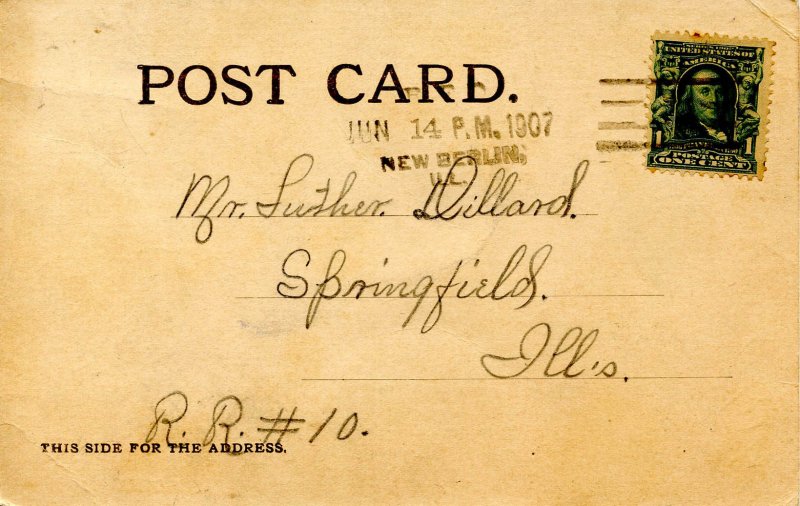 SERIES 1902
UNITED STATES OF
AMERICA
POST CARD.
JUN 14 P.M. 1907
NEW BERLIN,
ILL.
1 1
POSTAGE
ONE CENT
Mr. Luther. Dillard.
Springfield.
Ill's.
R. R. # 10.
THIS SIDE FOR THE ADDRESS.